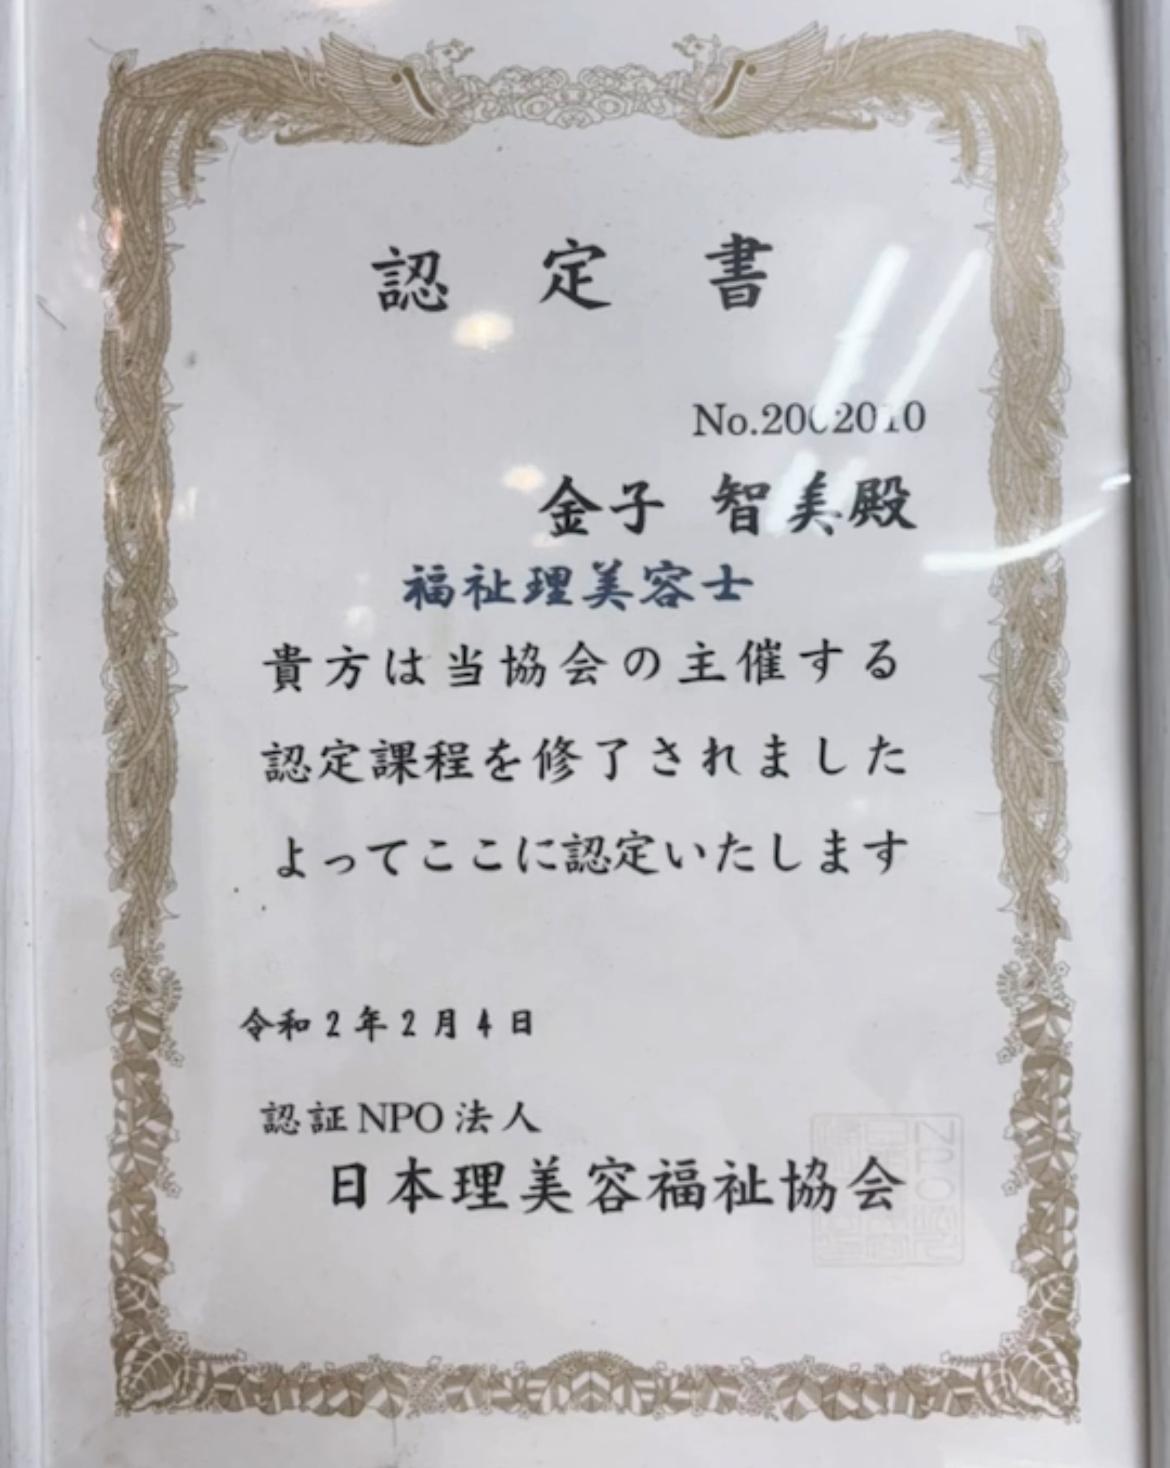 認定書
No.2002010
金子 智美殿
福祉理美容士
貴方は当協会の主催する
認定課程を修了されました
よってここに認定いたします
令和2年2月4日
認証NPO法人
日本理美容福祉協会